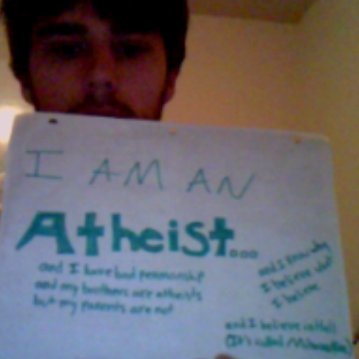 I AM AN
Atheist...
and I have bad penmanship
and my brothers are atheists
but my parents are not
and I know why
I believe what
I believe
and I believe in
(It's called